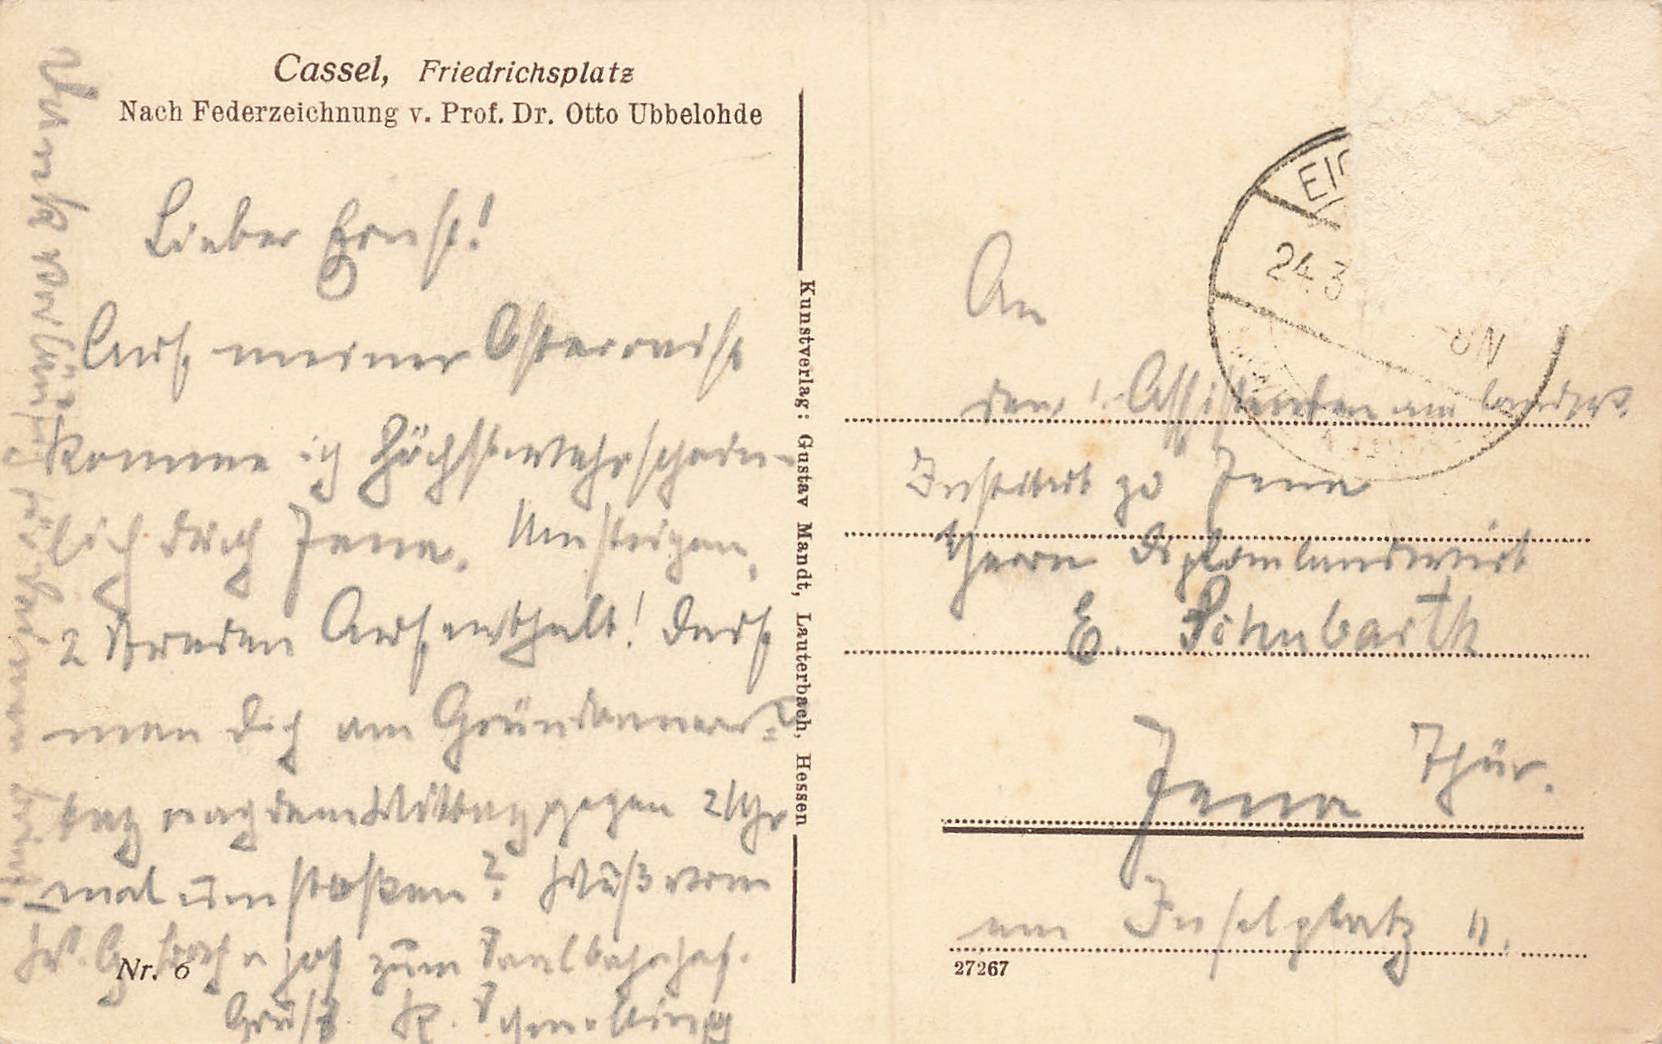 Cassel, Friedrichsplatz
Nach Federzeichnung v. Prof. Dr. Otto Ubbelohde
Lieber Ernst!
Auf meiner Osterreise
komme ich höchstwahrschein-
lich durch Jena. Umsteigen,
2 Stunden Aufenthalt! Darf
man dich am Gründonners-
tag nach dem Mittag gegen 2 Uhr
mal umstoßen? Muß vom
W. G. Bahnhof zum Saalbahnhof.
Gruß K. Schmelting
Vielen vorläufig
Kunstverlag: Gustav Mandt, Lauterbach, Hessen
Nr. 6
EI
24.3
An
den Assistenten am landw.
Institut zu Jena
Herrn Diplomlandwirt
E. Schubarth
Jena Thür.
am Inselplatz 11.
27267